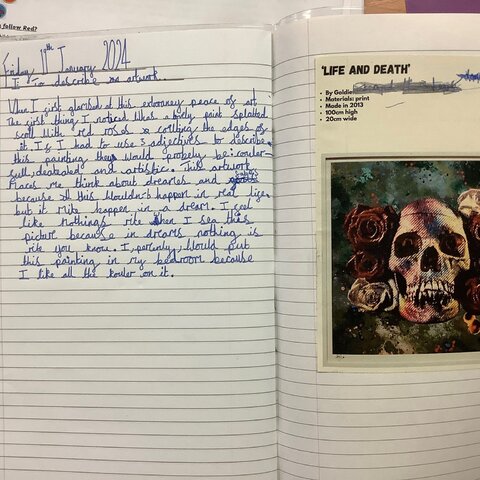 follow Red?
Friday 19th January 2024
I: To describe an artwork.
When I first glanbsed at this extaorney peace of art
The first thing I noticed was a birty paint splatted
scull With red roses cortling the edges of
it. If I had to use 3 adjectives to describe
this painting they would properly be: conder-
full, detealed and artistic. This artwork
Maces me think about dreames and
because it this wouldn't happen in real life
but it mite happen in a dream. I feel
like nothings rite when I see this
picture because in dreams nothing is
rite you know. I, personly, would put
this painting in my bedroom because
I like all the kouler on it.
'LIFE AND DEATH'
• By Goldie
• Materials: print
• Made in 2013
• 100cm high
• 20cm wide